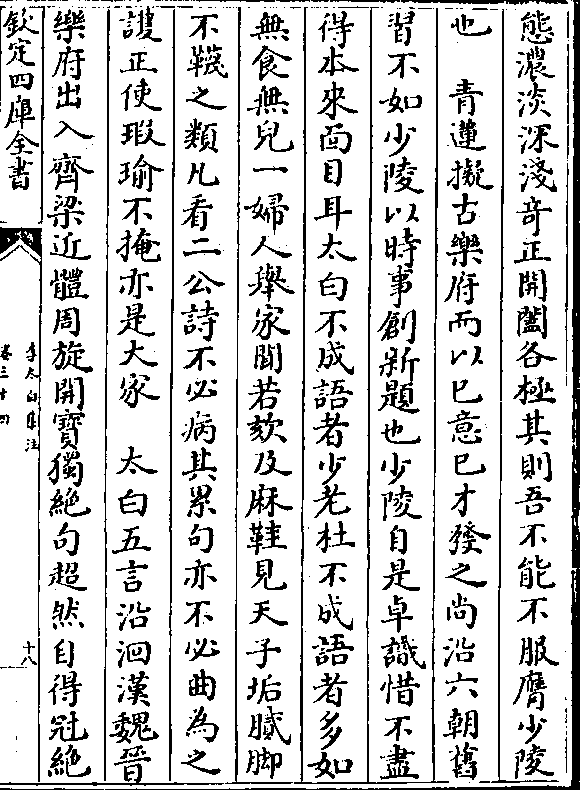 態濃淡深淺奇正開闔各極其則吾不能不服膺少陵
也　青蓮擬古樂府而以已意已才發之尚沿六朝舊
習不如少陵以時事創新題也少陵自是卓識惜不盡
得本來面目耳太白不成語者少老杜不成語者多如
無食無兒一婦人舉家聞若欬及麻鞋見天子垢膩脚
不韈之類凡看二公詩不必病其累句亦不必曲為之
䕶正使瑕瑜不掩亦是大家　太白五言沿洄漢魏晉
樂府出入齊梁近體周旋開寶獨絶句超然自得冠絶
欽定四庫全書
李太白集注
卷三十四
十八